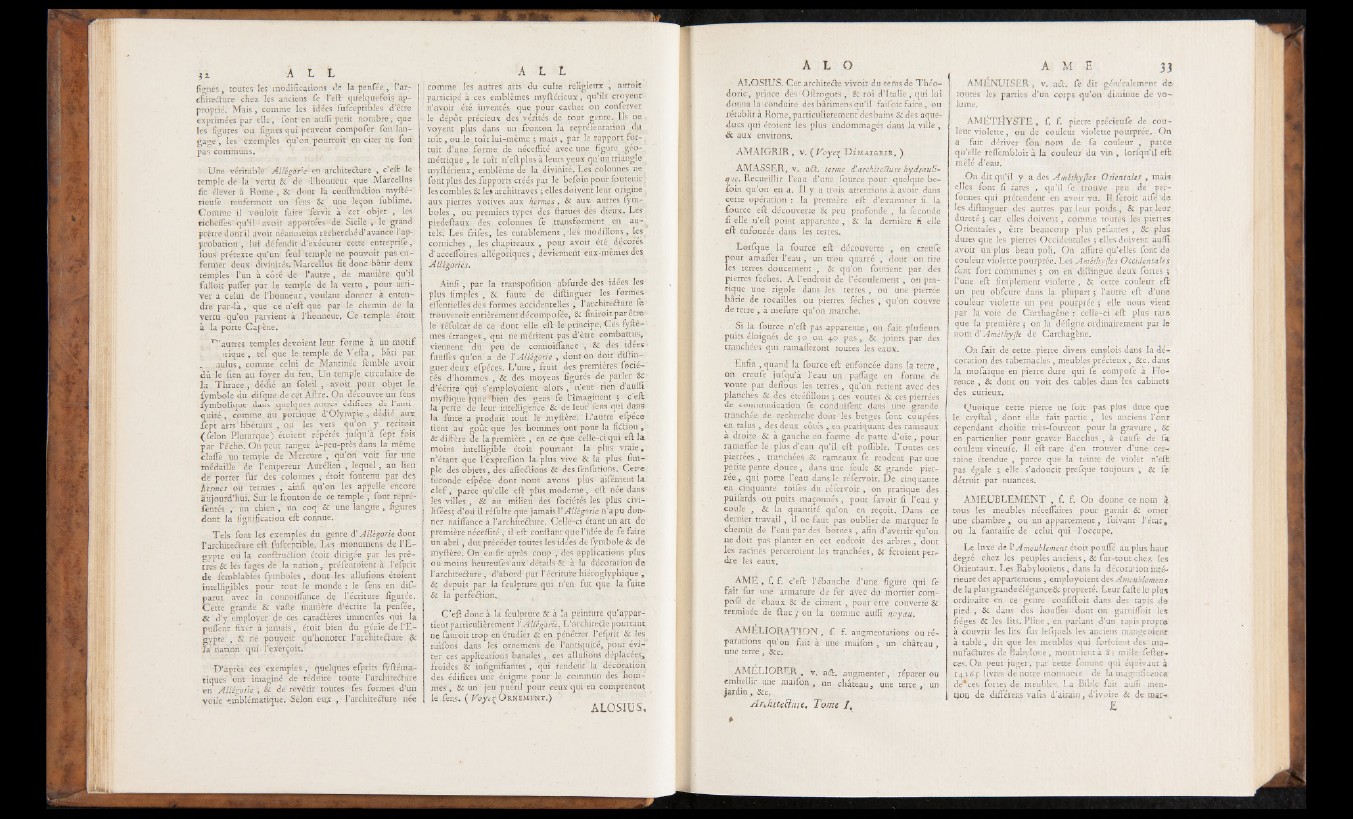 32 A L L
signes, toutes les modifications de la pensée, l'ar-
chitecture chez les anciens se l'est quelquefois ap-
proprié. Mais, comme les idées susceptibles d'être
exprimées par elle, sont en aussi petit nombre, que
les figures ou signes qui peuvent composer son lan-
gage, les exemples qu'on pourroit en citer ne sont
pas communs.
Une véritable Allégorie en architecture, c'est le
temple de la vertu & de l'honneur que Marcellus
fit élever à Rome, & dont la construction mysté-
rieuse renfermoit un sens & une leçon sublime.
Comme il vouloit faire servir à cet objet, les
richesses qu'il avoit apportées de Sicile, le grand
prêtre dont il avoit néanmoins recherché d'avance l'ap-
probation, lui défendit d'exécuter cette entreprise,
sous prétexte qu'un seul temple ne pouvoit pas en-
fermer deux divinités. Marcellus fit donc bâtir deux
temples l'un à côté de l'autre, de manière qu'il
falloit passer par le temple de la vertu, pour arri-
ver à celui de l'honneur, voulant donner à enten-
dre par-là, que ce n'est que par le chemin de la
vertu qu'on parvient à l'honneur. Ce temple étoit
à la porte Capène.
D'autres temples devoient leur forme à un motif
rique, tel que le temple de Vesta, bâti par
aulus, comme celui de Mantinée semble avoir
dû le sien au foyer du feu. Un temple circulaire de
la Thrace, dédié au soleil, avoit pour objet le
symbole du disque de cet Astre. On découvre un sens
symbolique dans quelques autres édifices de l'anti-
quité, comme au portique d'Olympie, dédié aux
sept arts libéraux, où les vers qu'on y récitoit
(selon Plutarque) étoient répétés jusqu'à sept fois
par l'écho. On peut ranger à-peu-près dans la même
classe un temple de Mercure, qu'on voit sur une
médaille de l'empereur Aurélien, lequel, au lieu
de porter sur des colonnes, étoit soutenu par des
hermes ou termes, ainsi qu'on les appelle encore
aujourd'hui. Sur le fronton de ce temple, sont repré-
sentés, un chien, un coq & une langue, figures
dont la signification est connue.
Tels sont les exemples du genre d'Allégorie dont
l'architecture est susceptible. Les monumens de l'E-
gypte où la construction étoit dirigée par les prê-
tres & les sages de la nation, présentoient à l'esprit
de semblables symboles, dont les allusions étoient
intelligibles pour tout le monde : le sens en dis-
parut avec la connoissance de l'écriture figurée.
Cette grande & vaste manière d'écrire la pensée,
& d'y employer de ces caractères immenses qui la
pussent fixer à jamais, étoit bien du génie de l'E-
gypte, & ne pouvoit qu'honorer l'architecture &
la nation qui l'exerçoit.
D'après ces exemples, quelques esprits systéma-
tiques ont imaginé de réduire toute l'architecture
en Allégorie, & de revêtir toutes ses formes d'un
voile emblématique. Selon eux, l'architecture née
A L L
comme les autres arts du culte religieux, auroit
participé à ces emblêmes mystérieux, qu'ils croyent
n'avoir été inventés que pour cacher ou conserver
le dépôt précieux des vérités de tout genre. Ils ne
voyent plus dans un fronton la représentation du
toit, ou le toit lui-même ; mais, par le rapport for-
tuit d'une forme de nécessité avec une figure géo-
métrique, le toit n'est plus à leurs yeux qu'un triangle
mystérieux, emblême de la divinité. Les colonnes ne
sont plus des supports créés par le besoin pour soutenir
les combles & les architraves ; elles doivent leur origine
aux pierres votives aux hermes, & aux autres sym-
boles, ou premiers types des statues des dieux. Les
piédestaux des colonnes se transforment en au-
tels. Les frises, les entablemens, les modillons, les
corniches, les chapiteaux, pour avoir été décorés
d'accessoires allégoriques, deviennent eux-mêmes des
Allégories.
Ainsi, par la transposition absurde des idées les
plus simples, & faute de distinguer les formes
essentielles des formes accidentelles, l'architecture se
trouveroit entièrement décomposée, & finiroit par être
le résultat de ce dont elle est le principe. Ces systê-
mes étranges, qui ne méritent pas d'être combattus,
viennent du peu de connoissance, & des idées
fausses qu'on a de l'Allégorie, dont on doit distin-
guer deux espèces. L'une, fruit des premières socié-
tés d'hommes, & des moyens figurés de parler &
d'écrire qui s'employoient alors, n'eut rien d'aussi
mystique que bien des gens se l'imaginent ; c'est
la perte de leur intelligence & de leur sens qui dans
la suite a produit tout le mystère. L'autre espèce
tient au goût que les hommes ont pour la fiction,
& diffère de la première, en ce que celle-ci qui est la
moins intelligible étoit pourtant la plus vraie,
n'étant que l'expression la plus vive & la plus sim-
ple des objets, des affections & des sensations. Cette
seconde espèce dont nous avons plus aisément la
clef, parce qu'elle est plus moderne, est née dans
les villes, & au milieu des sociétés les plus civi-
lisées ; d'où il résulte que jamais l'Allégorie n'a pu don-
ner naissance à l'architecture. Celle-ci étant un art de
première nécessité, il est constant que l'idée de se faire
un abri, dut précéder toutes les idées de symbole & de
mystère. On en fit après coup, des applications plus
ou moins heureuses aux détails & à la décoration de
l'architecture, d'abord par l'écriture hiéroglyphique,
& depuis par la sculpture qui n'en fut que la suite
& la perfection.
C'est donc à la sculpture & à la peinture qu'appar-
tient particulièrement l'Allégorie. L'architecte pourtant
ne sauroit trop en étudier & en pénétrer l'esprit & les
raisons dans les ornemens de l'antiquité, pour évi-
ter ces applications banales, ces allusions déplacées,
froides & insignifiantes, qui rendent la décoration
des édifices une énigme pour le commun des hom-
mes, & un jeu puéril pour ceux qui en comprennent
le sens. (Voyez ORNEMENT.)
ALOSIUS.
A L O
ALOSIUS. Cet architecte vivoit du tems de Théo-
doric, prince des Ostrogots, & roi d'Italie, qui lui
donna la conduite des bâtimens qu'il faisoit faire, ou
rétablir à Rome, particulierement des bains & des aque-
ducs qui étoient les plus endommagés dans la ville,
& aux environs.
AMAIGRIR, v. (Voyez DÉMAIGRIR.)
AMASSER, v. act. terme d'architecture hydrauli-
que. Recueillir l'eau d'une source pour quelque be-
soin qu'on en a. Il y a trois attentions à avoir dans
cette opération : la première est d'examiner si la
source est découverte & peu profonde, la seconde
si elle n'est point apparente, & la dernière si elle
est enfoncée dans les terres.
Lorsque la source est découverte, on creuse
pour amasser l'eau, un trou quarré, dont on tire
les terres doucement, & qu'on soutient par des
pierres sèches. A l'endroit de l'écoulement, on pra-
tique une rigole dans les terres, ou une pierrée
bâtie de rocailles ou pierres sèches, qu'on couvre
de terre, à mesure qu'on marche.
Si la source n'est pas apparente, on fait plusieurs
puits éloignés de 30 ou 40 pas, & joints par des
tranchées qui ramasseront toutes les eaux.
Enfin, quand la source est enfoncée dans la terre,
on creuse jusqu'à l'eau un passage en forme de
voute par dessous les terres, qu'on retient avec des
planches & des étrésillons ; ces voutes & ces pierrées
de communication se conduisent dans une grande
tranchée de recherche dont les berges sont coupées
en talus, des deux côtés, en pratiquant des rameaux
à droite & à gauche en forme de patte d'oie, pour
ramasser le plus d'eau qu'il est possible. Toutes ces
pierrées, tranchées & rameaux se rendent par une
petite pente douce, dans une seule & grande pier-
rée, qui porte l'eau dans le réservoir. De cinquante
en cinquante toises du réservoir, on pratique des
puisards ou puits maçonnés, pour savoir si l'eau y
coule, & la quantité qu'on en reçoit. Dans ce
dernier travail, il ne faut pas oublier de marquer le
chemin de l'eau par des bornes, afin d'avertir qu'on
ne doit pas planter en cet endroit des arbres, dont
les racines perceroient les tranchées, & feroient per-
dre les eaux.
AME, s. f. c'est l'ébauche d'une figure qui se
fait sur une armature de fer avec du mortier com-
posé de chaux & de ciment, pour être converte &
terminée de stuc ; on la nomme aussi noyau.
AMÉLIORATION, s. f. augmentations ou ré-
parations qu'on fait à une maison, un château,
une terre, &c.
AMÉLIORER, v. act. augmenter, réparer ou
embellir une maison, un château, une terre, un
jardin, &c.
Architecture. Tome I.
A M E 33
AMÉNUISER, v. act. se dit généralement de
toutes les parties d'un corps qu'on diminue de vo-
lume.
AMÉTHYSTE, s. f. pierre précieuse de cou-
leur violette, ou de couleur violette pourprée. On
a fait dériver son nom de sa couleur, parce
qu'elle ressembloit à la couleur du vin, lorsqu'il est
mêlé d'eau.
On dit qu'il y a des Améthystes Orientales, mais
elles sont si rares, qu'il se trouve peu de per-
sonnes qui prétendent en avoir vu. Il seroit aisé de
les distinguer des autres par leur poids, & par leur
dureté ; car elles doivent, comme toutes les pierres
Orientales, être beaucoup plus pesantes, & plus
dures que les pierres Occidentales ; elles doivent aussi
avoir un plus beau poli. On assure qu'elles sont de
couleur violette pourprée. Les Améthystes Occidentales
sont fort communes ; on en distingue deux sortes ;
l'une est simplement violette, & cette couleur est
un peu obscure dans la plupart ; l'autre est d'une
couleur violette un peu pourprée ; elle nous vient
par la voie de Carthagène : celle-ci est plus rare
que la première ; on la désigne ordinairement par le
nom d'Améthyste de Carthagène.
On fait de cette pierre divers emplois dans la dé-
coration des tabernacles, meubles précieux, &c. dans
la mosaïque en pierre dure qui se compose à Flo-
rence, & dont on voit des tables dans les cabinets
des curieux.
Quoique cette pierre ne soit pas plus dure que
le crystal, dont elle fait partie, les anciens l'ont
cependant choisie très-souvent pour la gravure, &
en particulier pour graver Bacchus, à cause de sa
couleur vineuse. Il est rare d'en trouver d'une cer-
taine étendue, parce que la teinte de violet n'est
pas égale ; elle s'adoucit presque toujours, & se
détruit par nuances.
AMEUBLEMENT, s. f. On donne ce nom à
tous les meubles nécessaires pour garnir & orner
une chambre, ou un appartement, suivant l'état,
ou la fantaisie de celui qui l'occupe.
Le luxe de l'Ameublement étoit poussé au plus haut
degré chez les peuples anciens, & sur-tout chez les
Orientaux. Les Babyloniens, dans la décoration inté-
rieure des appartemens, employoient des Ameublemens
de la plus grande élégance & propreté. Leur faste le plus
ordinaire en ce genre consistoit dans des tapis de
pied, & dans des housses dont on garnissoit les
siéges & les lits. Pline, en parlant d'un tapis propre
à couvrir les lits sur lesquels les anciens mangeoient
à table, dit que les meubles qui sortoient des ma-
nufactures de Babylone, montoient à 81 mille sester-
ces. On peut juger, par cette somme qui équivaut à
livres de notre monnoie, de la magnificence
de ces sortes de meubles. La Bible fait aussi men-
tion de différens vases d'airain, d'ivoire & de mar-
E